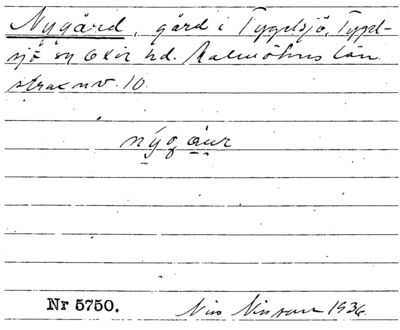 Nygård, gård i Tygelsjö, Tygel-
sjö sn Oxie hd. Malmöhus län
nr. 10.
Nr 5750. Nils Nilsson 1936.